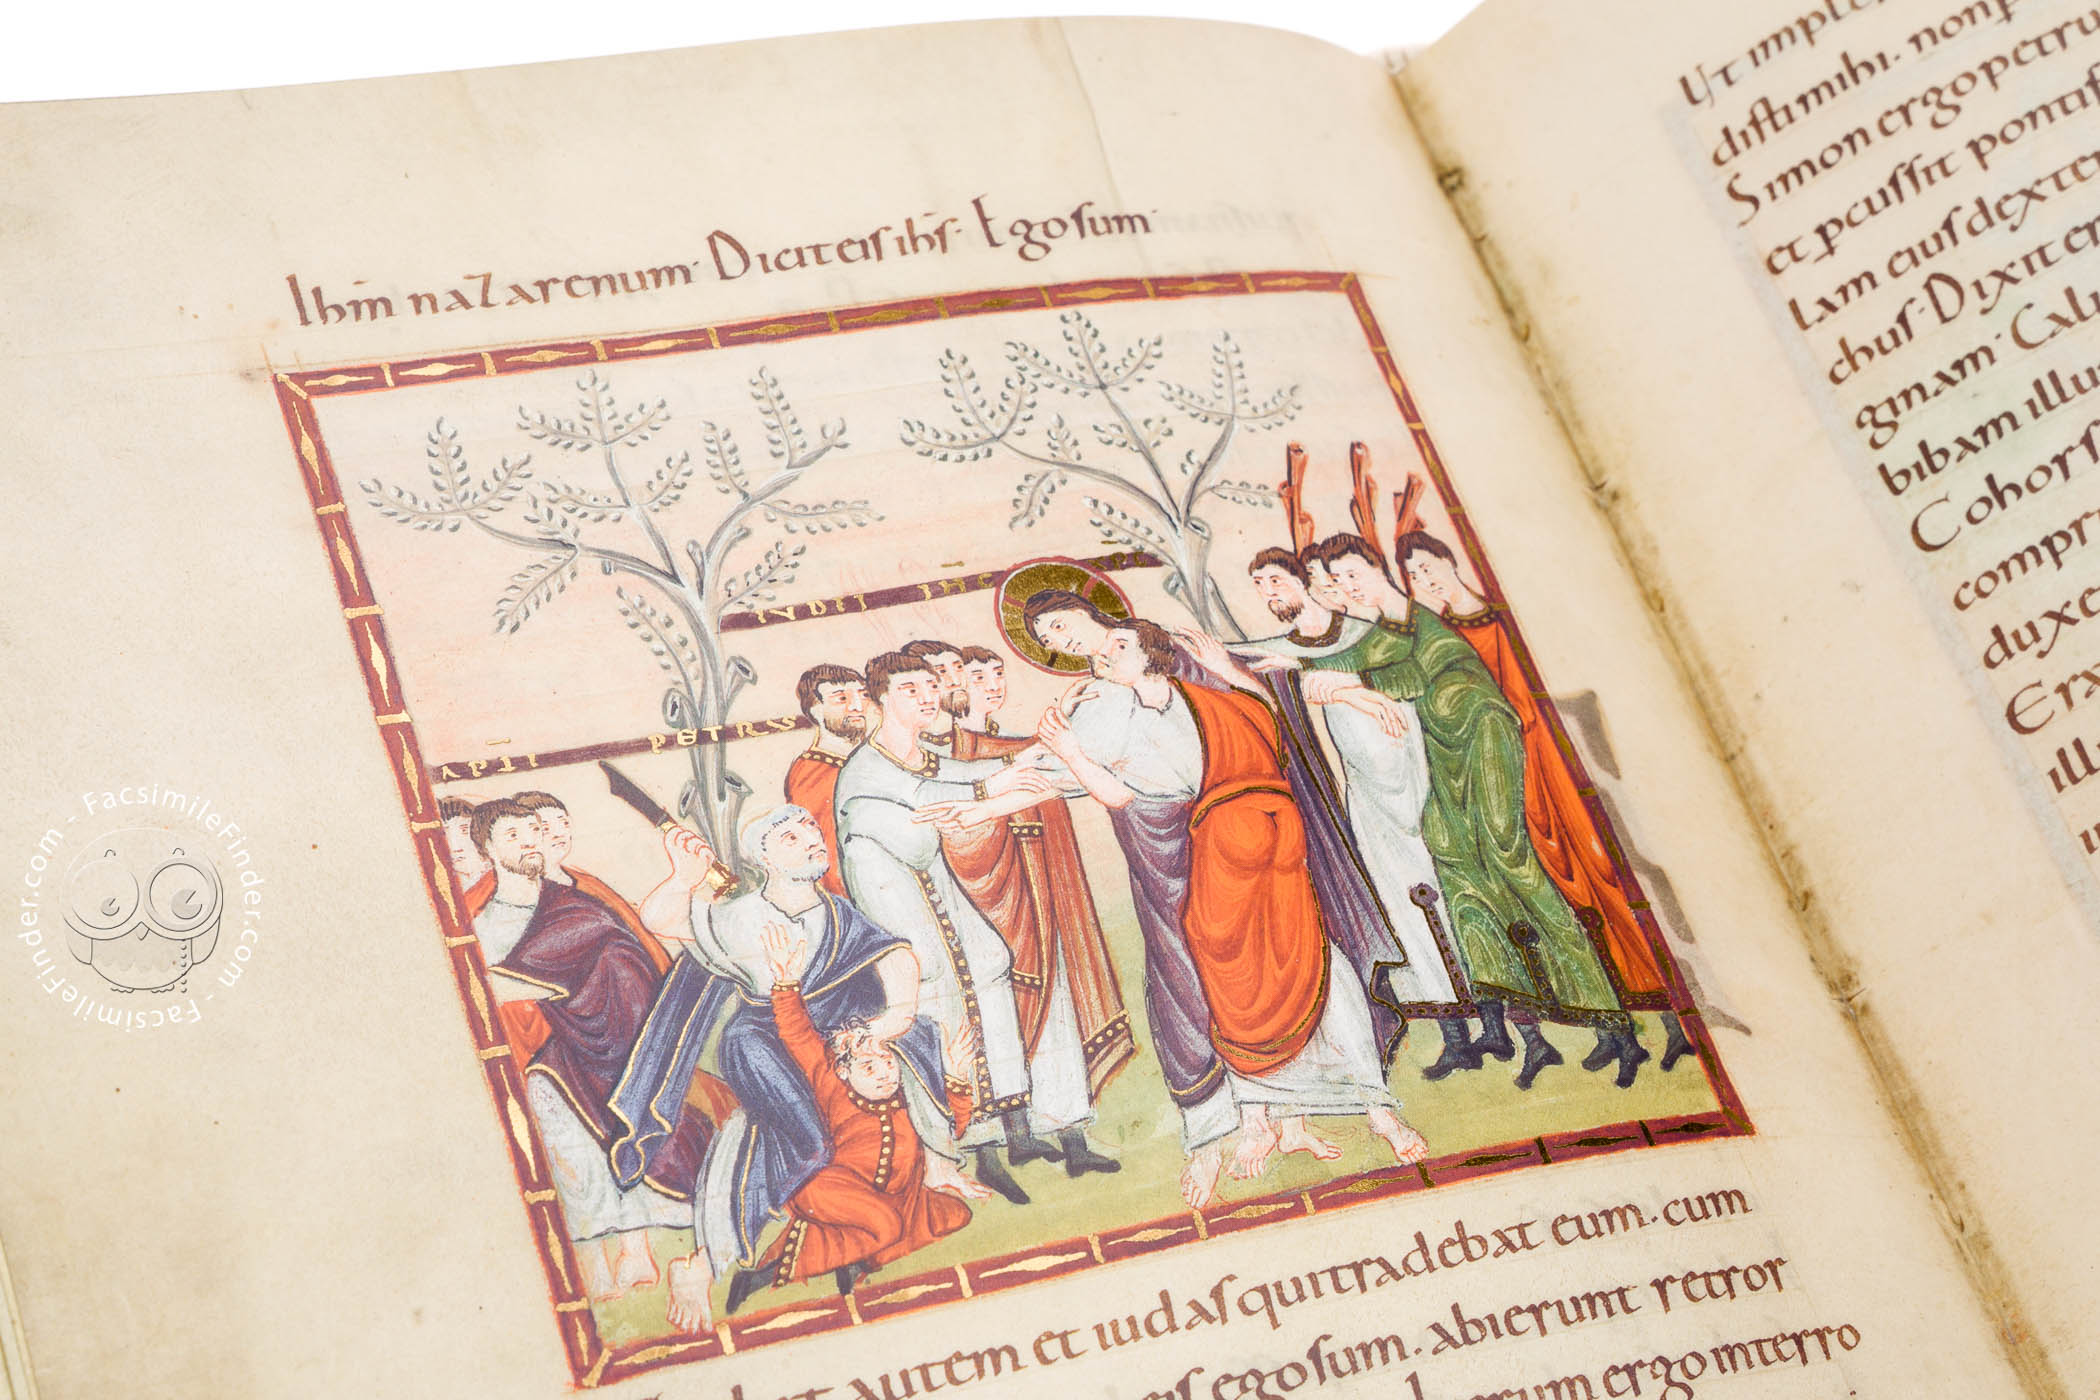 Ihm nazarenum· Dicit eis ihs· Ego sum·
IVDEI IHC
APTI PETRVS
autem et iudas qui tradebat eum· cum
eis ego sum· abierunt retror
ergo interro
Ut imple
disti mihi· non p
Simon ergo petru
et pcussit pontif
lam eius dexte
chus· Dixit er
ginam· Cal
bibam illu
Cohors
compr
duxe
Et
ill
FacsimileFinder.com - FacsimileFinder.com - FacsimileFinder.com